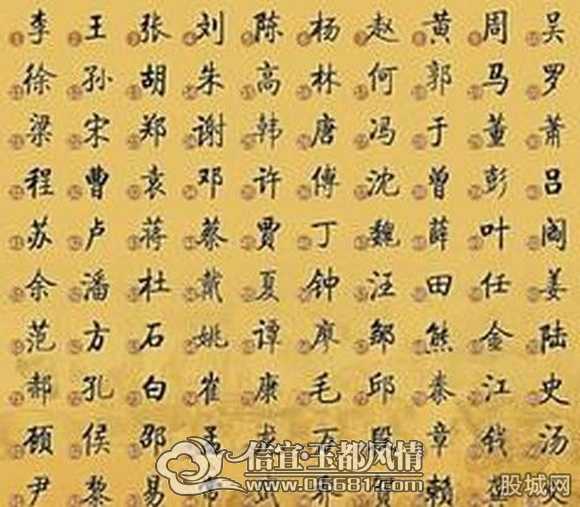 李 王 张 刘 陈 杨 赵 黄 周 吴
徐 孙 胡 朱 高 林 何 郭 马 罗
梁 宋 郑 谢 韩 唐 冯 于 董 萧
程 曹 袁 邓 许 傅 沈 曾 彭 吕
苏 卢 蒋 蔡 贾 丁 魏 薛 叶 阎
余 潘 杜 戴 夏 钟 汪 田 任 姜
范 方 石 姚 谭 廖 邹 熊 金 陆
郝 孔 白 崔 康 毛 邱 秦 江 史
顾 侯 邵 孟 龙 万 段 章 钱 汤
尹 黎 易 常 武 乔 贺 赖 龚 文
信宜·玉都风情
www.06681.com
股城网